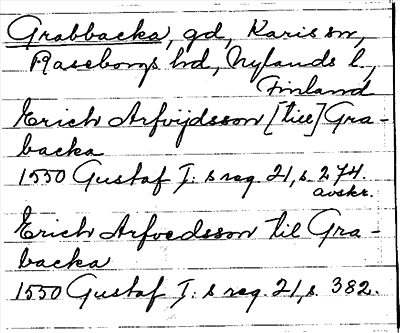 Grabbacka, gd, Karis sn,
Raseborgs hd, Nylands l.,
Finland
Erich Arfvijdsson [till] Gra-
backa
1550 Gustaf I: s reg. 21, s. 274.
avskr.
Erich Arfvedsson til Gra-
backa
1550 Gustaf I: s reg. 21, s. 382.